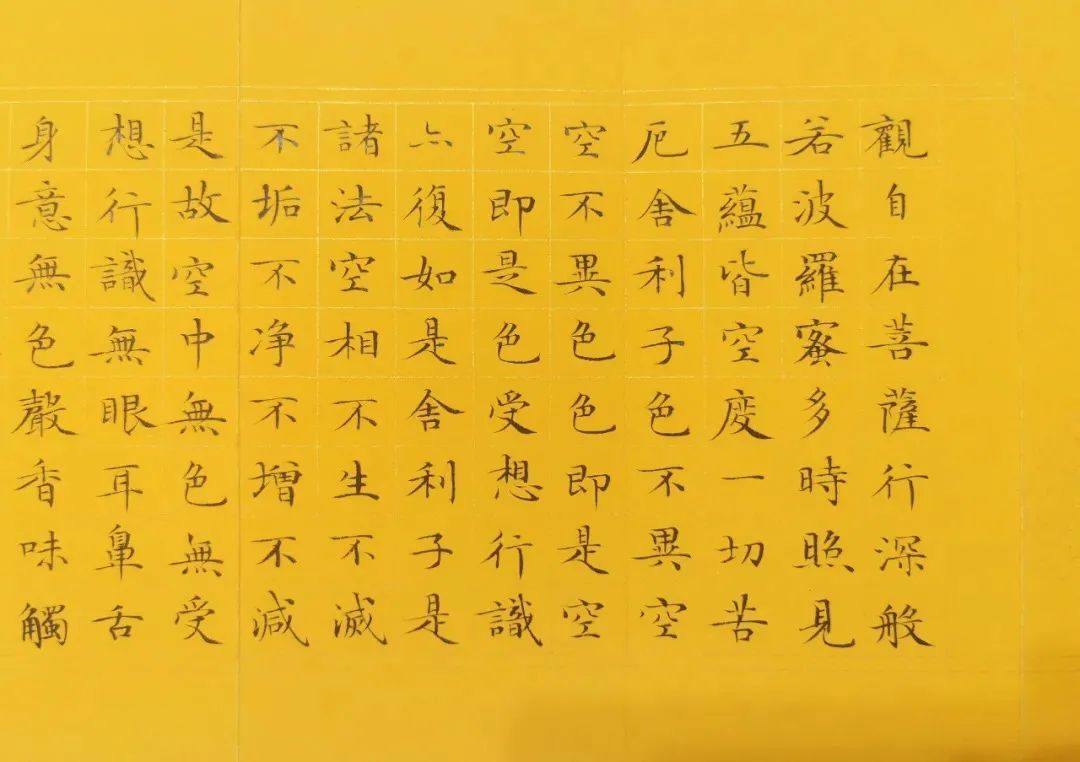 觀自在菩薩行深般
若波羅蜜多時照見
五蘊皆空度一切苦
厄舍利子色不異空
空不異色色即是空
空即是色受想行識
亦復如是舍利子是
諸法空相不生不滅
不垢不净不增不減
是故空中無色無受
想行識無眼耳鼻舌
身意無色聲香味觸